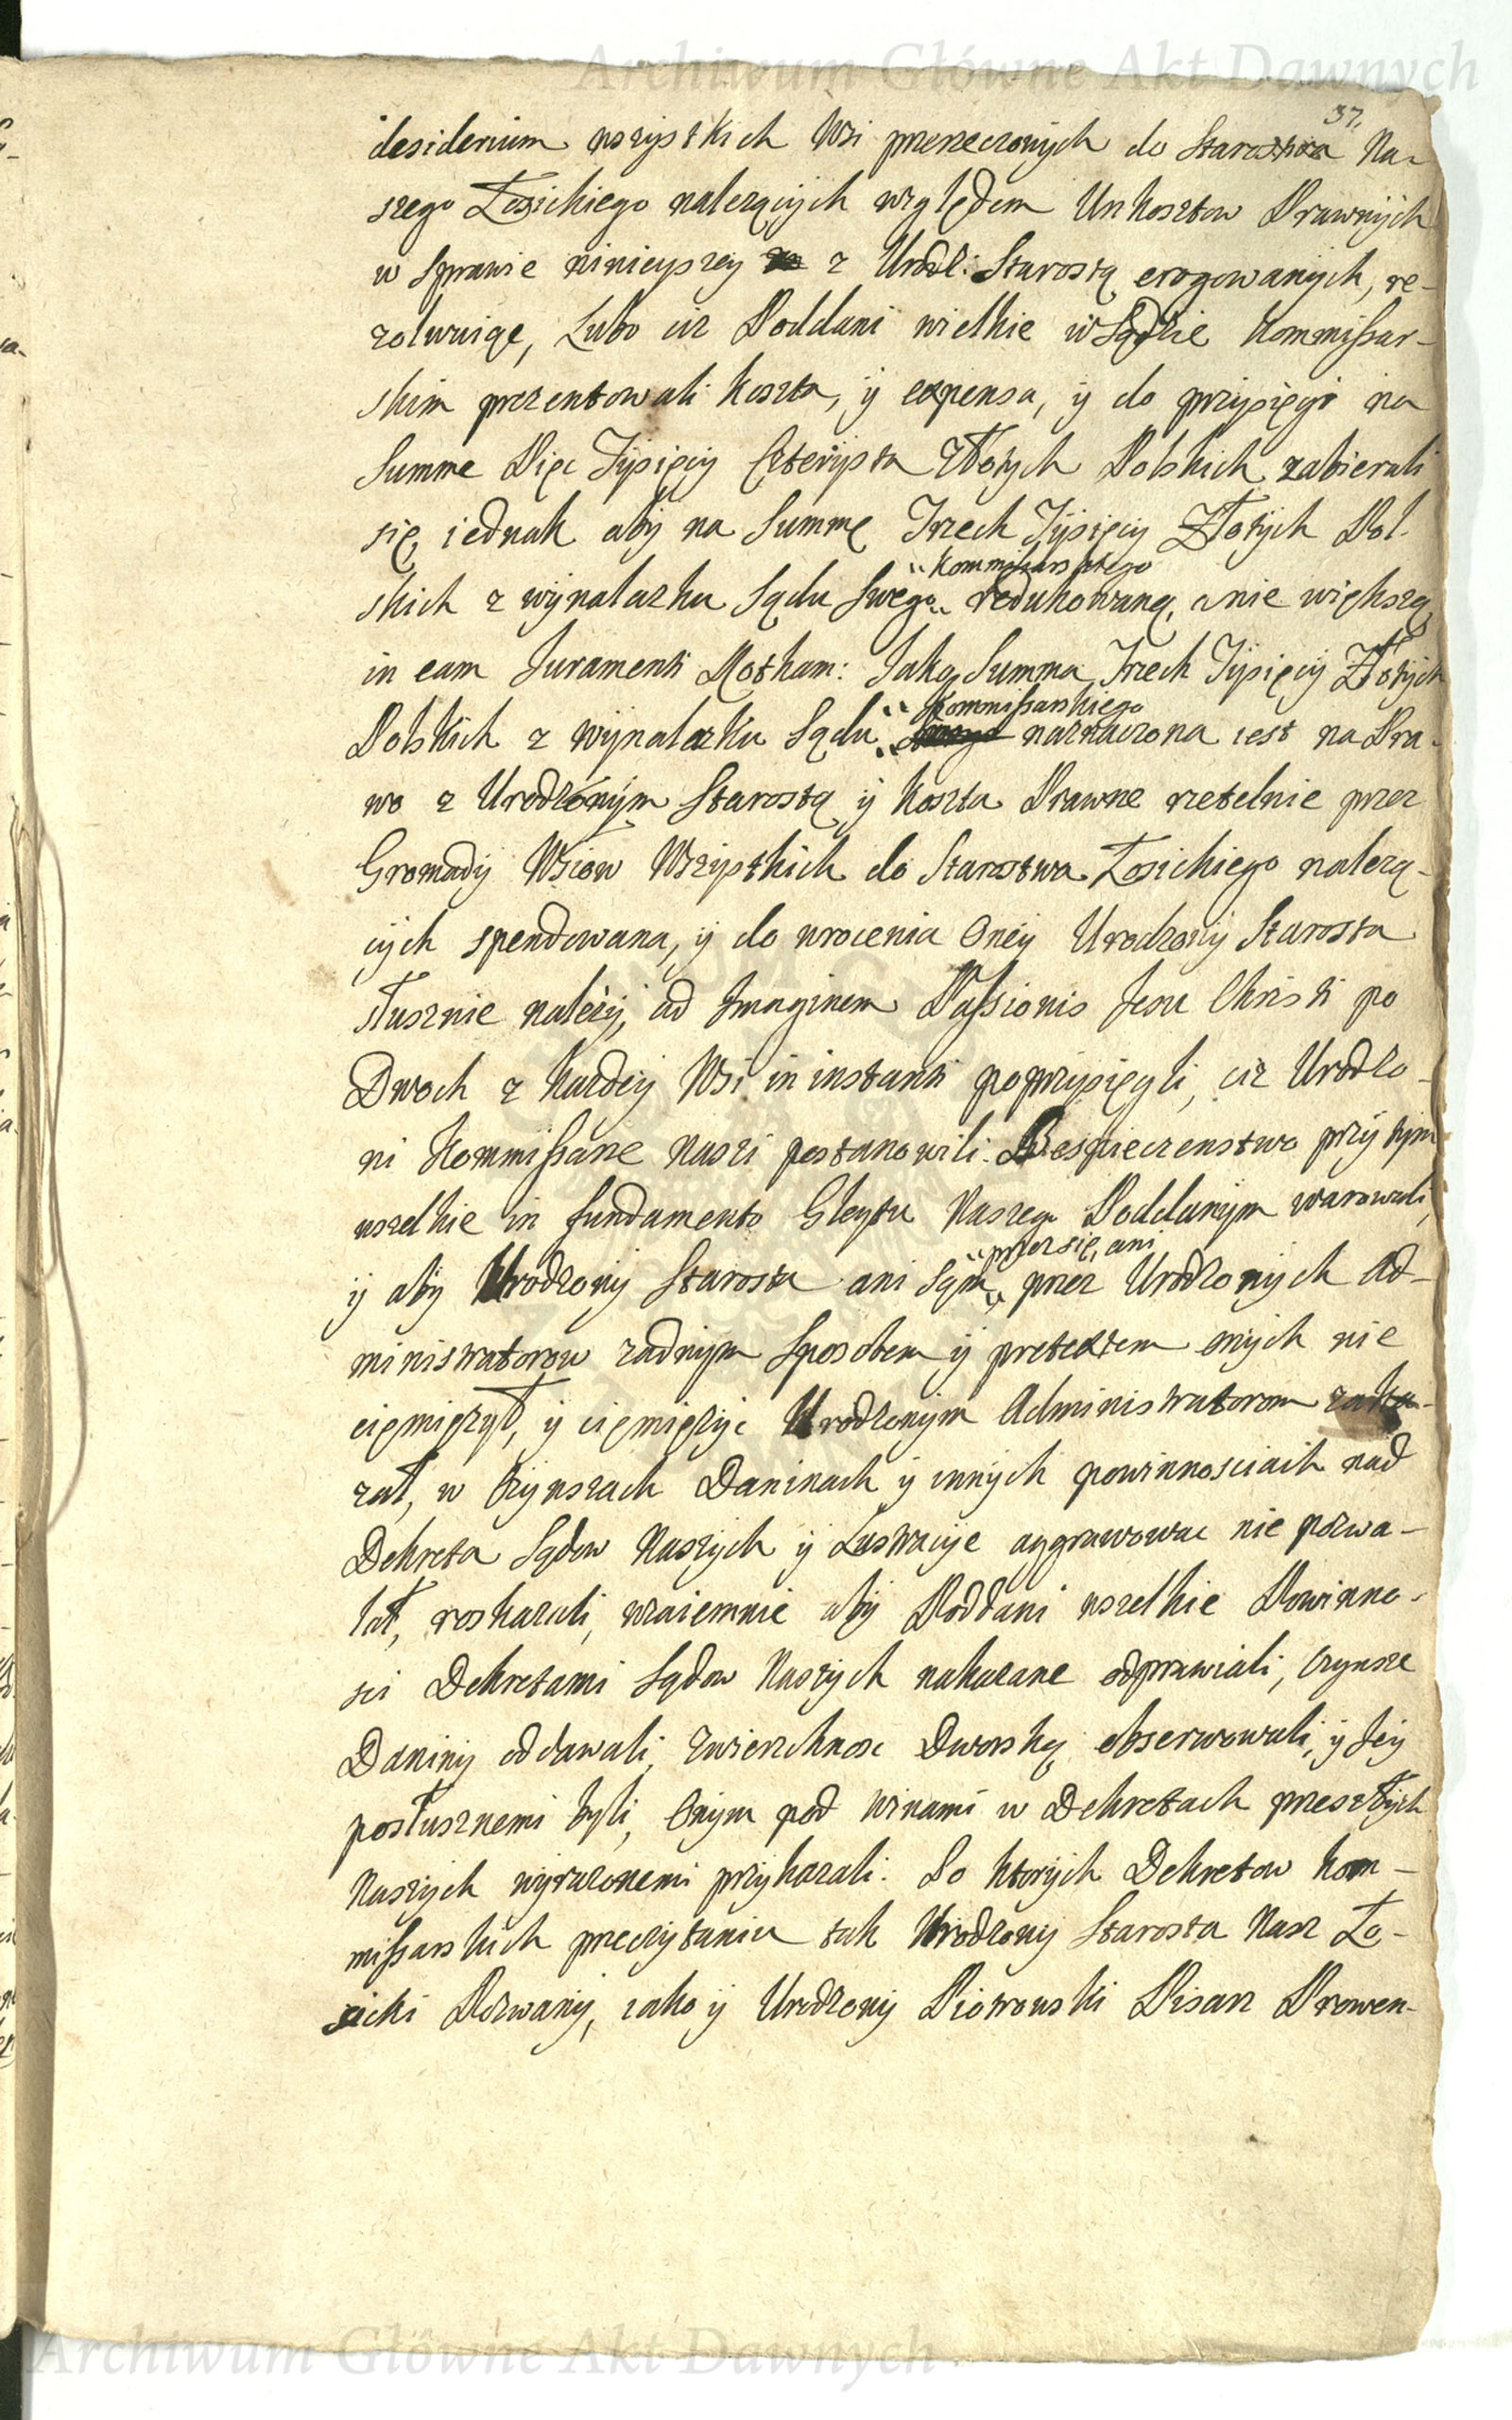 Archiwum Główne Akt Dawnych
37.
desiderium wszystkich Wsi przerzeczonych do Starostwa Na-
szego Łosickiego nalezących względem Unkosztow Prawnych
w sprawie ninieyszey z Urodz: Starostą erogowanych, re-
zolwuiąc, Lubo ciz Poddani wielkie w Sądzie Kommissar-
skim prezentowali koszta, y expensa, y do przysięgi na
Summe Pięc Tysięcy Czterysta Złotych Polskich zabierali
się, iednak aby na Summę Trzech Tysięcy Złotych Pol-
Kommissarskiego
skich z wynalazku Sądu Swego redukowaną, a nie większą
in eam Juramenti Rotham: Jako Summa Trzech Tysięcy Złotych
Kommissarskiego
Polskich z wynalazku Sądu naznaczona iest na Pra-
wo z Urodzonym Starostą y koszta Prawne rzetelnie przez
Gromady Wsiow Wszystkich do Starostwa Łosickiego nalezą-
cych spendowana, y do wrocenia Oney Urodzony Starosta
słusznie nalezy, ad Imaginem Passionis Jesu Christi po
Dwoch z kazdey Wsi in instanti poprzysięgli, ciz Urodzo-
ni Kommissarze Naszi postanowili. Bespieczenstwo przy tym
wszelkie in fundamento Gleytu Naszego Poddanym warowali,
przez się, ani
y aby Urodzony Starosta ani sam, przez Urodzonych Ad-
ministratorow zadnym sposobem y pretextem onych nie
cięmięzył, y cięmięzyc Urodzonym Administratorom zaka-
zał, w Czynszach Daninach y innych powinnosciach nad
Dekreta Sądow Naszych y Lustracyie aggrawowac nie pozwa-
lał, roskazali, wzaiemnie aby Poddani wszelkie Powinno-
sci Dekretami Sądow Naszych nakazane odprawiali, Czynsze
Daniny oddawali, zwierzchnosc Dworską obserwowali, y Jey
posłusznemi byli, Onym pod winami w Dekretach przeszłych
Naszych wyrazonemi przykazali. Po ktorych Dekretow Kom-
missarskich przeczytaniu tak Urodzony Starosta Nasz Ło-
sicki Pozwany, iako y Urodzony Piotrowski Pisarz Prowen-
Archiwum Główne Akt Dawnych